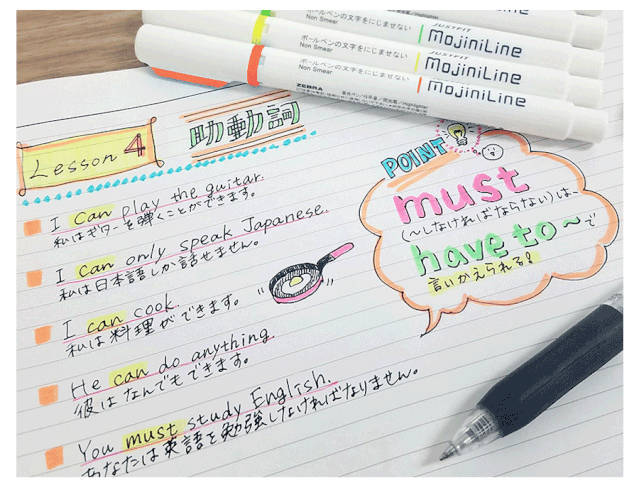 ボールペンの文字をにじませない
Non Smear
JUSTFIT
MojiniLine
ボールペンの文字をにじませない
Non Smear
JUSTFIT
MojiniLine
ボールペンの文字をにじませない
Non Smear
JUSTFIT
MojiniLine
ZEBRA
Lesson 4
助動詞
I can play the guitar.
私はギターを弾くことができます。
I can only speak Japanese.
私は日本語しか話せません。
I can cook.
私は料理ができます。
He can do anything.
彼はなんでもできます。
You must study English.
あなたは英語を勉強しなければなりません。
POINT
must
(〜しなければならない)は
have to〜で
言いかえられる!